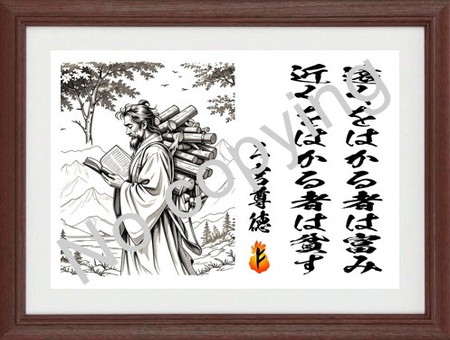 遠くをはかる者は富み
近くをはかる者は貧す
二宮尊徳
No Copying